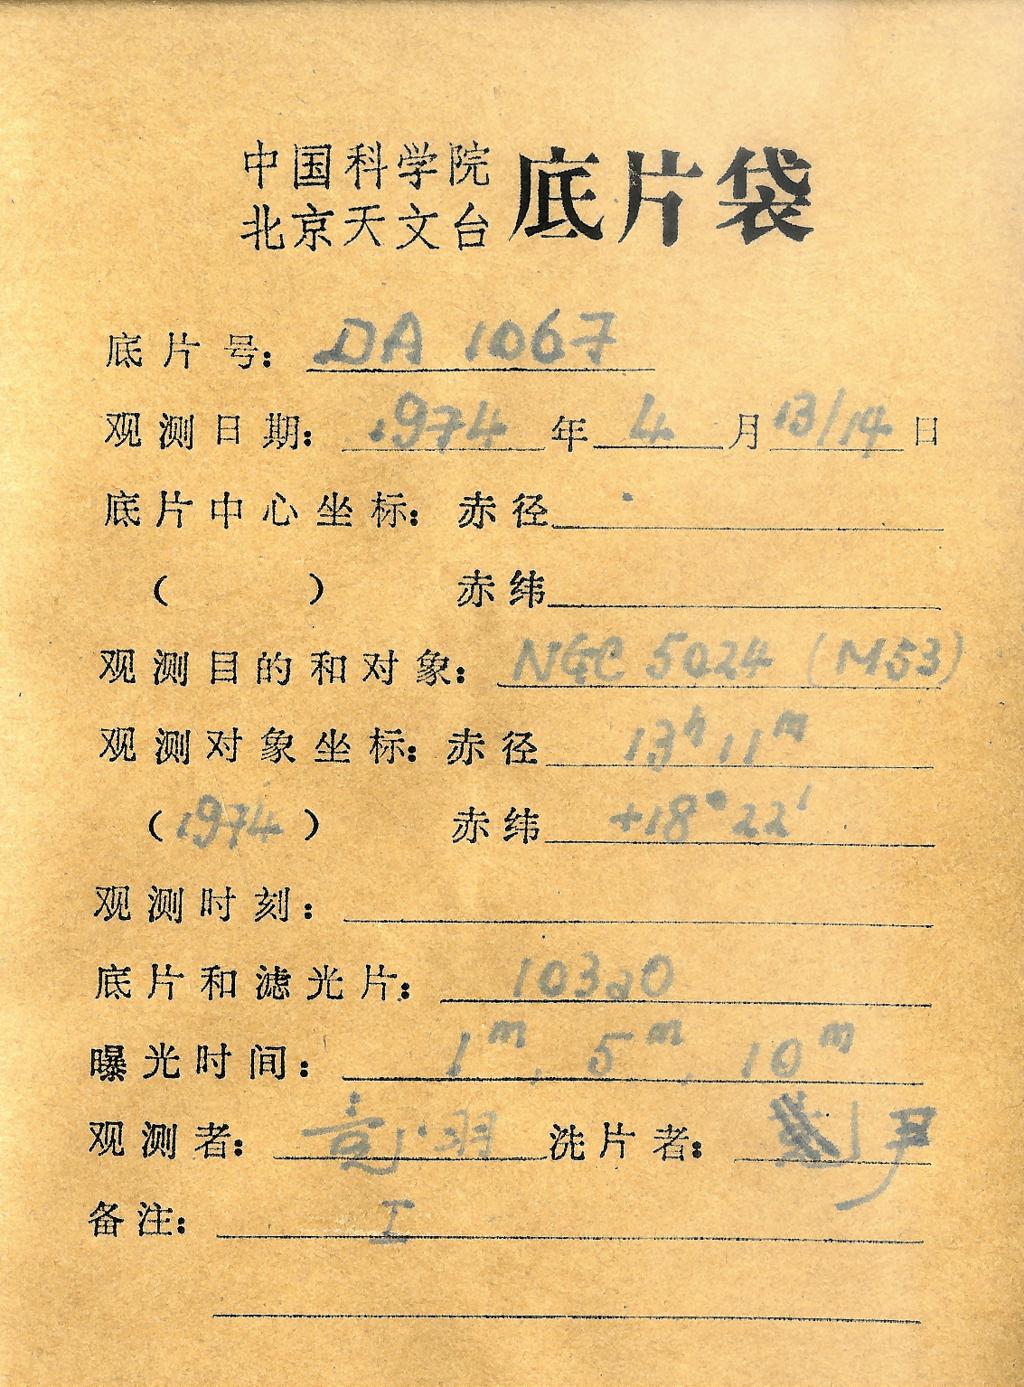 中国科学院
北京天文台 底片袋
底片号: DA 1067
观测日期: 1974 年 4 月 13/14 日
底片中心坐标: 赤径
( ) 赤纬
观测目的和对象: NGC 5024 (M53)
观测对象坐标: 赤径 13h 11m
(1974) 赤纬 +18° 22′
观测时刻:
底片和滤光片: 103aO
曝光时间: 1m, 5m, 10m
观测者: 洗片者:
备注: I